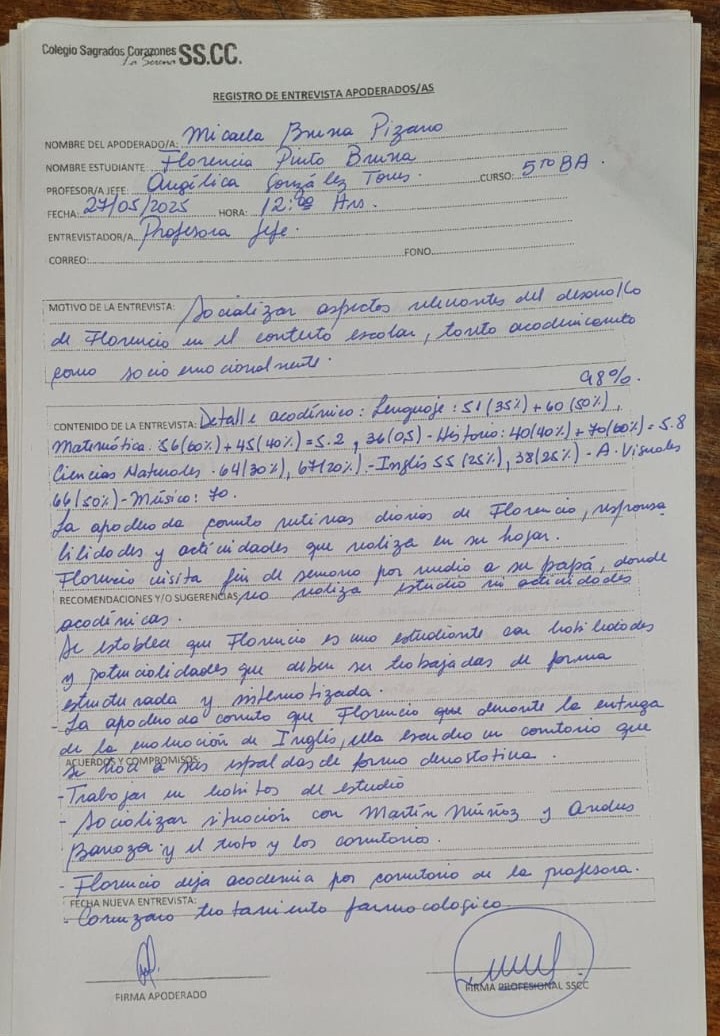 Colegio Sagrados Corazones SS.CC.
La Serena
REGISTRO DE ENTREVISTA APODERADOS/AS
NOMBRE DEL APODERADO/A: Micaela Bruna Pizarro
NOMBRE ESTUDIANTE: Florencia Pinto Bruna
PROFESOR/A JEFE: Angélica González Torres. CURSO: 5TO BA.
FECHA: 27/05/2025 HORA: 12:00 Hrs.
ENTREVISTADOR/A: Profesora Jefe.
CORREO: FONO
MOTIVO DE LA ENTREVISTA: Socializar aspectos relevantes del desarrollo
de Florencia en el contexto escolar, tanto academicamente
como socio emocionalmente.
98%.
CONTENIDO DE LA ENTREVISTA: Detalle académico: Lenguaje: 51 (35%) + 60 (50%),
Matemática: 56(60%) + 45(40%) = 5.2, 36(05) - Historia: 40(40%) + 70(60%) = 5.8
Ciencias Naturales: 64(30%), 67(20%) - Inglés 55 (25%), 38(25%) - A. Visuales
66(50%) - Música: 70.
La apoderada comenta rutinas diarias de Florencia, responsa
bilidades y actividades que realiza en su hogar.
Florencia visita fin de semana por medio a su papá, donde
RECOMENDACIONES Y/O SUGERENCIAS: no realiza estudio ni actividades
académicas.
Se establece que Florencia es una estudiante con habilidades
y potencialidades que deben ser trabajadas de forma
estructurada y sistematizada.
- La apoderada comenta que Florencia que durante la entrega
de la evaluación de Inglés, ella escucho un comentario que
ACUERDOS Y COMPROMISOS:
se hizo a sus espaldas de forma
- Trabajar en habitos de estudio
- Socializar situación con Martín Núñiz y
y el trato y los comentarios.
- Florencia deja academia por comentario de la profesora.
FECHA NUEVA ENTREVISTA:
- Comenzara tratamiento farmacologico
FIRMA APODERADO
FIRMA PROFESIONAL SSCC